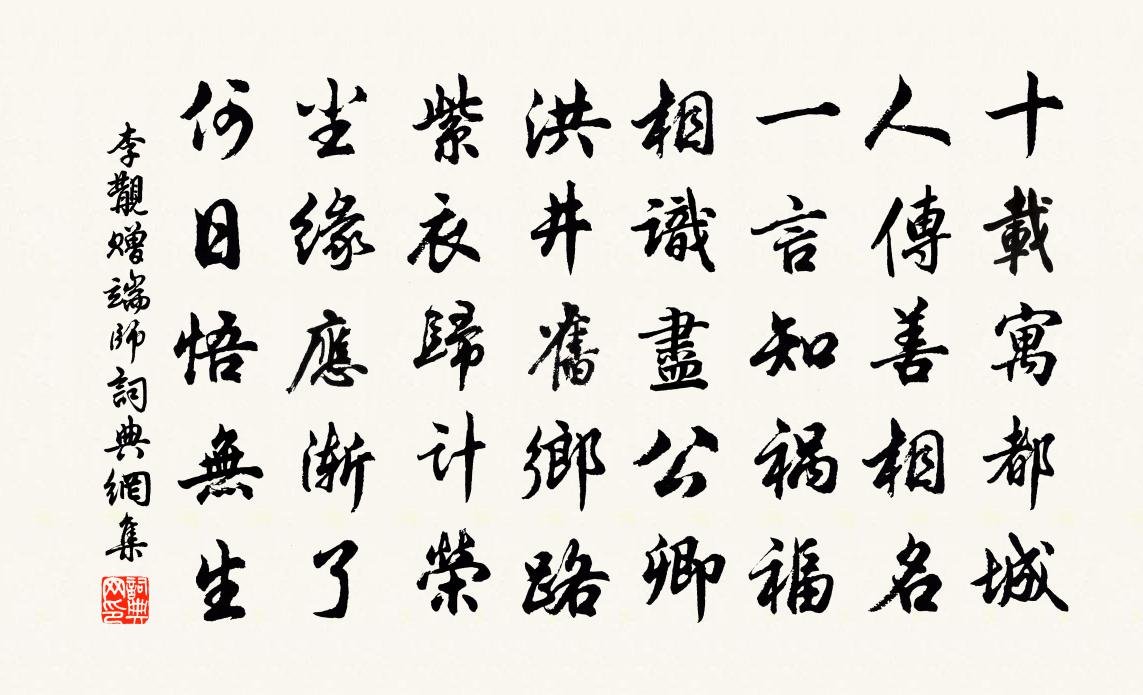 十載寓都城
人傳善相名
一言知禍福
相識盡公卿
洪井舊鄉路
紫衣歸計榮
塵緣應漸了
何日悟無生
李覯贈端師詞典網集
詞典網印